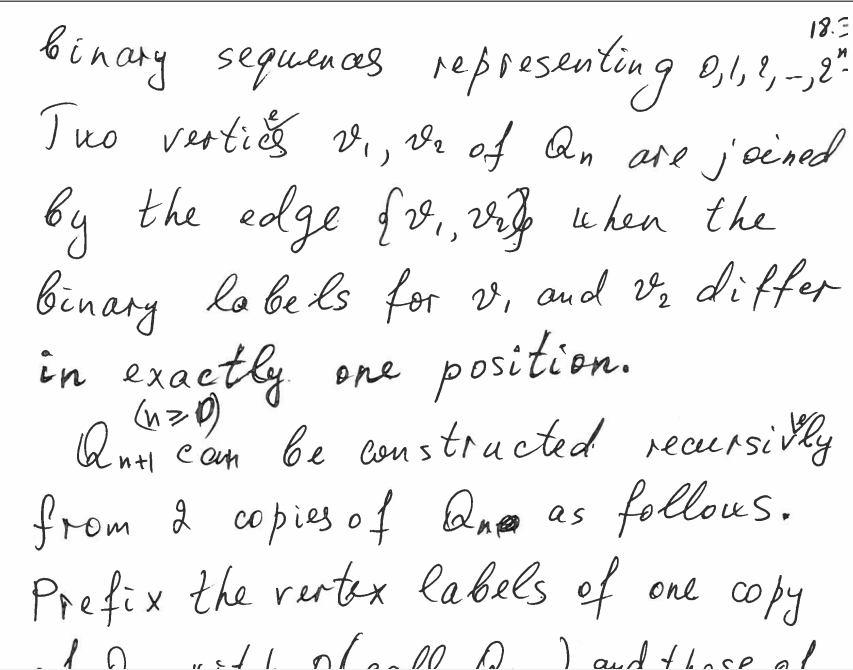 18.3
binary sequences representing 0,1,2,–,2ⁿ-
Two vertices v₁, v₂ of Qₙ are joined
by the edge {v₁, v₂} when the
binary labels for v₁ and v₂ differ
in exactly one position.
(n ≥ 0)
Qₙ₊₁ can be constructed recursively
from 2 copies of Qₙ as follows.
Prefix the vertex labels of one copy
of Q with 0 (call Q ) and those of